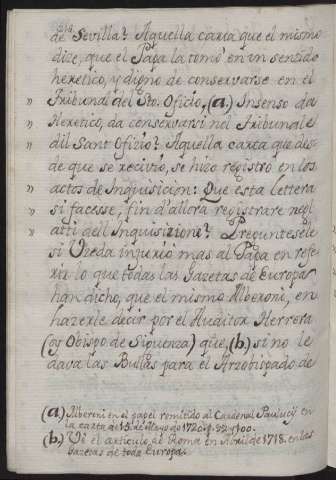 de Sevilla? Aquella carta que el mismo
dize, que el Papa la tomó en un sentido
heretico, y digno de conservarse en el
" Tribunal del Sto. Oficio, (a.) Insenso da
" Heretico, da conservarsi nel Tribunale
" dil Sant Ofizio? Aquella carta que des-
" de que se recivió, se hizo registró en los
" actos de Inquisicion: Que esta lettera
" si facesse, fin d'allora registrare negl
" atti dell Inquisizioni? Preguntesele
si Uzeda injurió mas al Papa en refe-
rir lo que todas las Gazetas de Europa
han dicho, que el mismo Alberoni, en
hazerle decir por el Auditor Herrera
(oy Obispo de Siguenza) que, (b.) si no le
dava las Bullas para el Arzobispado de
(a.) Alberini en el papel remitido al Cardenal Paulucij en
la carta de 15. de Mayo de 1720. f. 99. y 100.
(b.) Vi el articulo de Roma en Abril de 1718. en las
Gazetas de toda Europa.